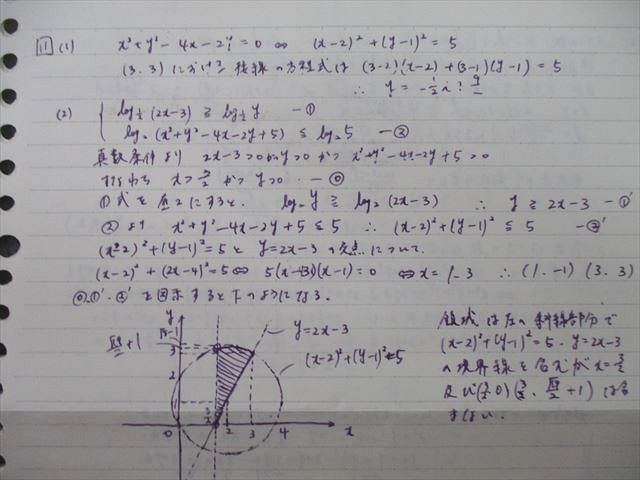 1 (1) x²+y²-4x-2y=0 ⇔ (x-2)²+(y-1)²=5
(3.3)における接線の方程式は (3-2)(x-2)+(3-1)(y-1)=5
(2) { log½(2x-3) ≧ log½ y -①
log₂(x²+y²-4x-2y+5) ≦ log₂5 -②
真数条件より 2x-3>0かつy>0かつ x²+y²-4x-2y+5>0
すなわち x>3/2 かつ y>0 -⓪
①式を底2にすると. log₂y ≧ log₂(2x-3) ∴ y≧2x-3 -①'
②より x²+y²-4x-2y+5≦5 ∴ (x-2)²+(y-1)²≦5 -②'
(x-2)²+(y-1)²=5と y=2x-3 の交点について.
(x-2)²+(2x-4)²=5 ⇔ 5(x-3)(x-1)=0 ⇔ x=1.3 ∴ (1.-1) (3.3)
⓪.①'.②'を図示すると下のようになる.
y
+1
3
2
0
2
3
4
x
y=2x-3
(x-2)²+(y-1)²=5
領域は左の斜線部分で
(x-2)²+(y-1)²=5. y=2x-3
の境界線を含むが x=3/2
及び(3/2.0) (3/2. +1)は含
まない.